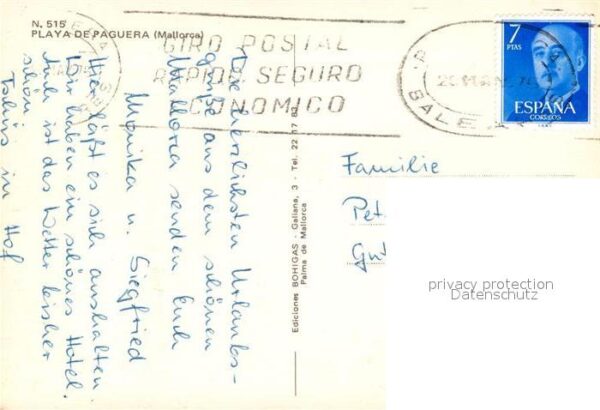 N. 515
PLAYA DE PAGUERA (Mallorca)
GIRO POSTAL
RAPIDO SEGURO
CONOMICO
BALEA
7
PTAS
ESPAÑA
CORREOS
Die herzlichsten Urlaubs-
grüße aus dem schönen
Mallorca senden Euch
Monika u. Siegfried
Hier läßt es sich aushalten
Wir haben ein schönes Hotel.
Auch ist das Wetter bisher
schön
Tschüs in Hof
Ediciones BOHIGAS - Galiana, 3 - Tel. 22 17 83
Palma de Mallorca
Familie
Pet
Gut
privacy protection
Datenschutz